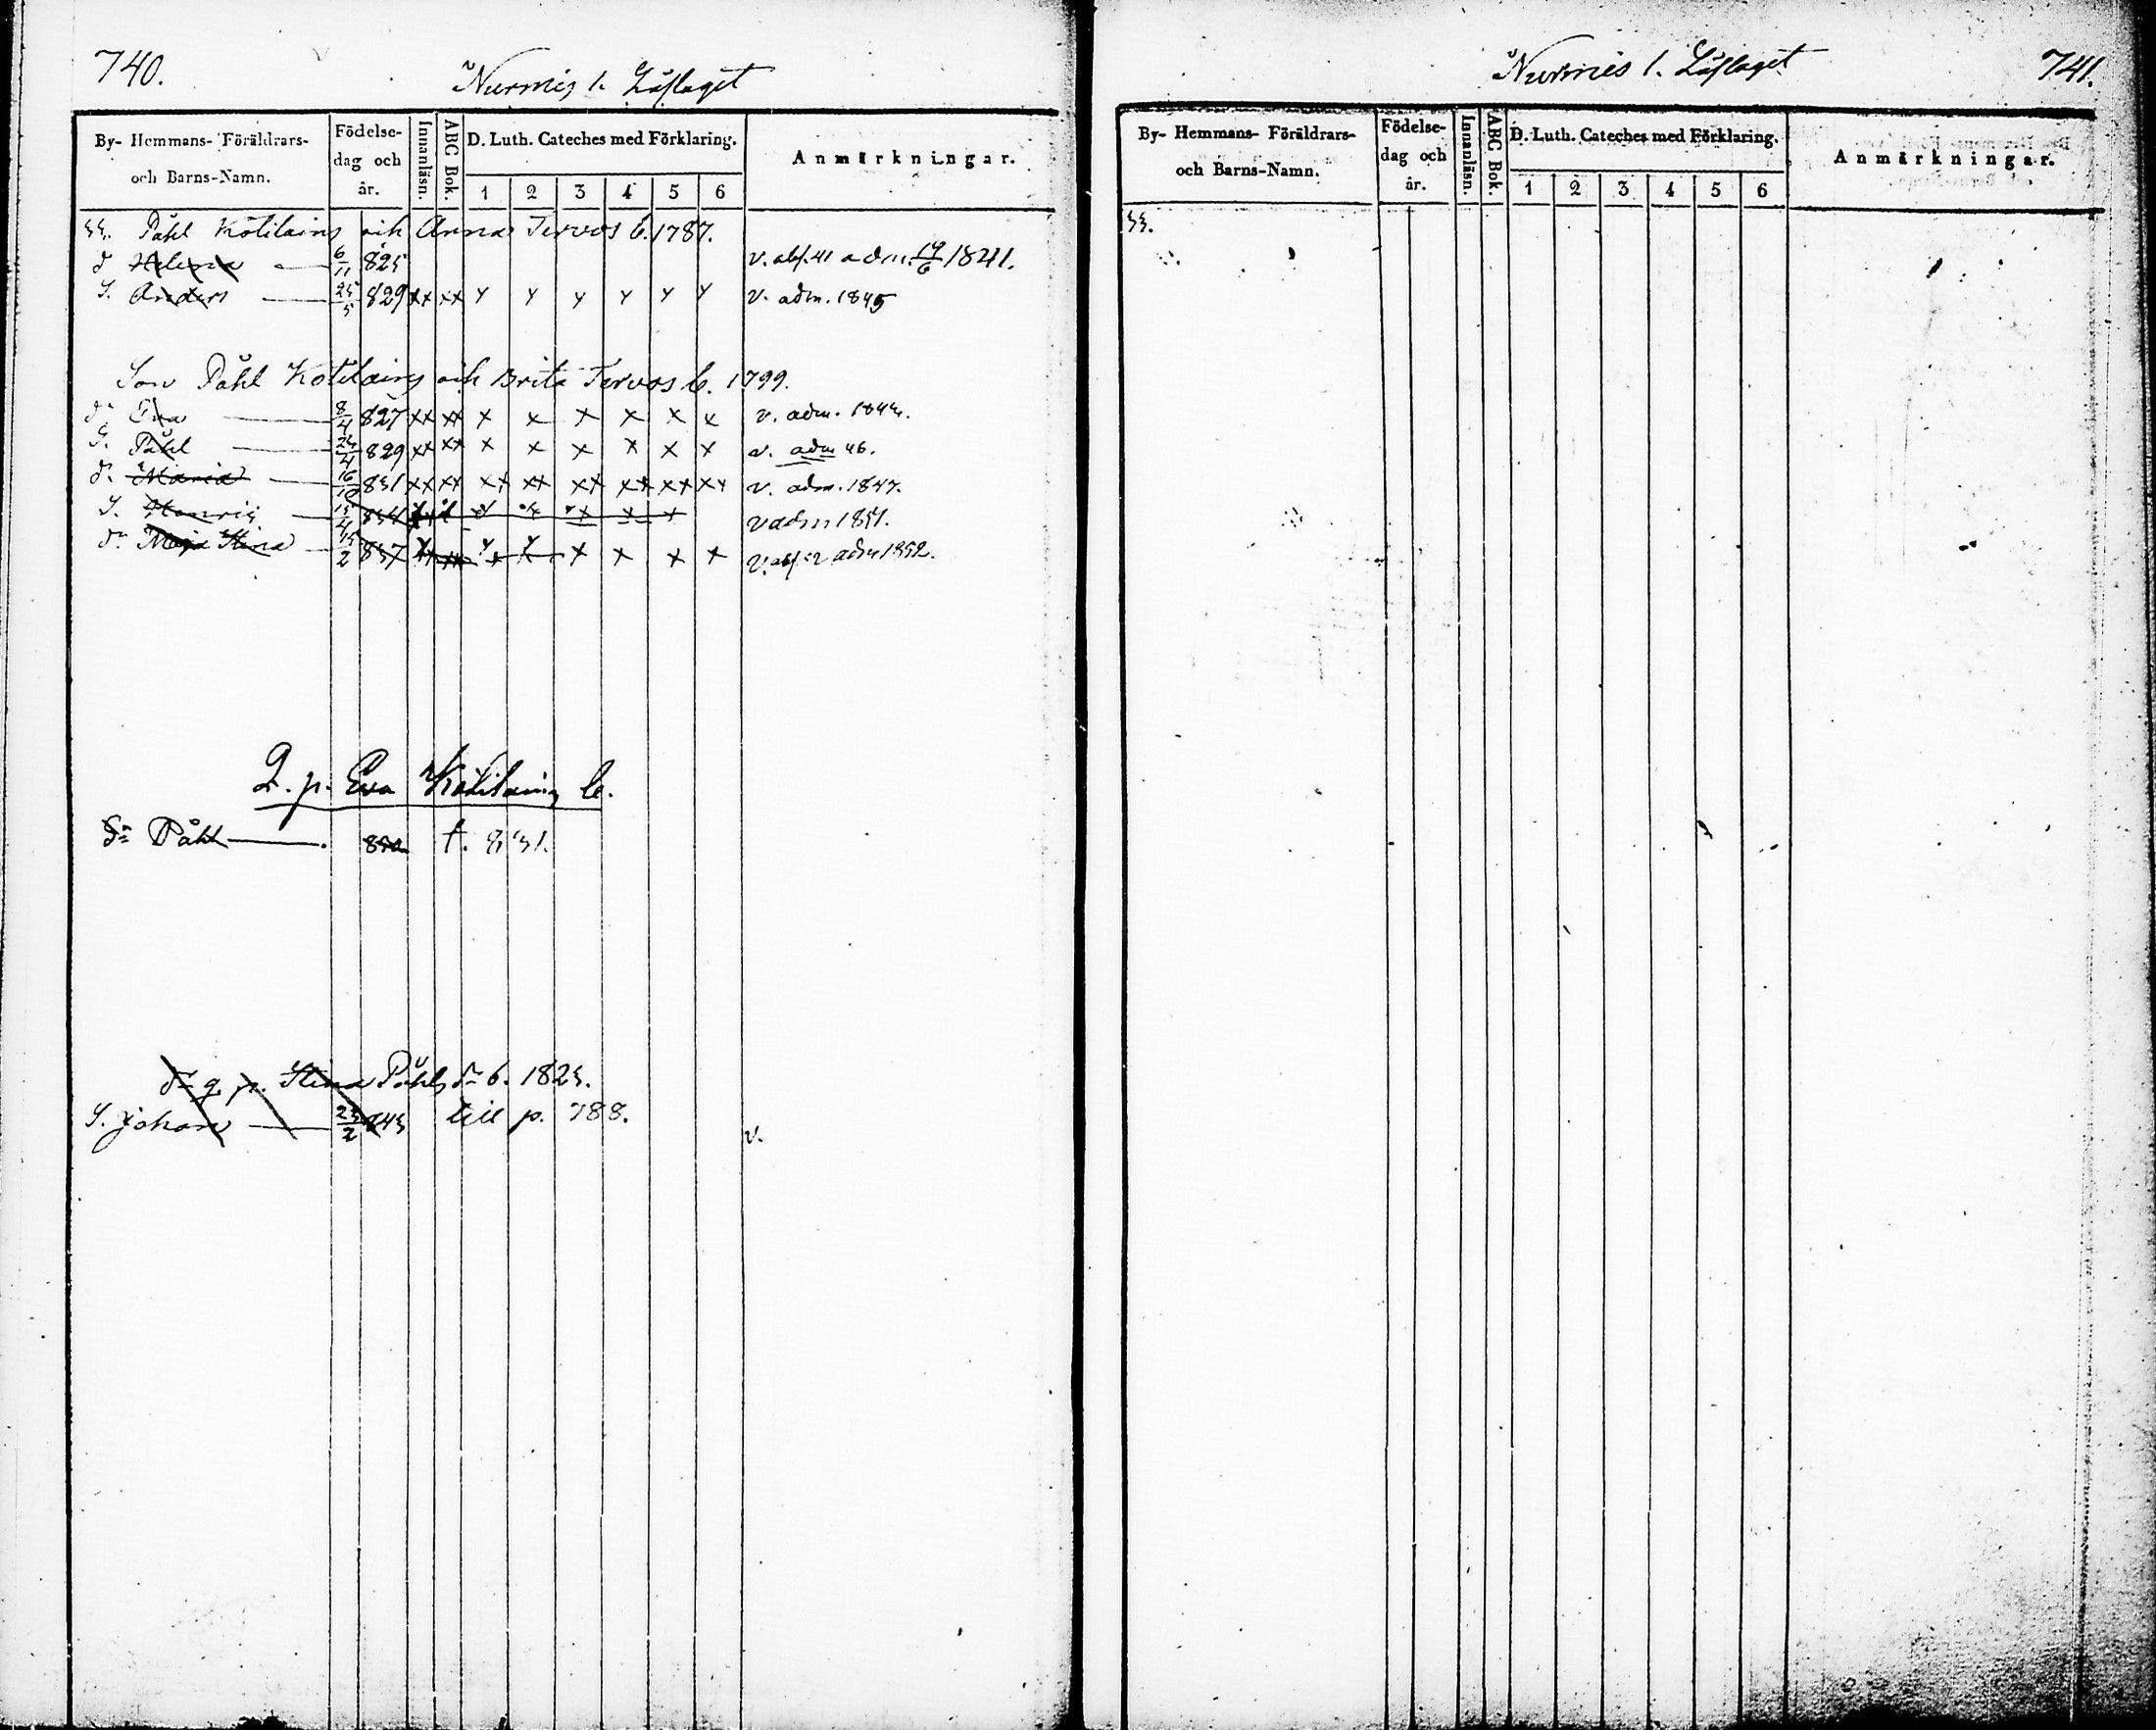 740.
Nurmis 1. Läslaget
By- Hemmans- Föräldrars- och Barns-Namn.
Födelse- dag och år.
Innanläsn.
ABC Bok.
D. Luth. Cateches med Förklaring.
1 2 3 4 5 6
Anmärkningar.
33. Påhl Kotilains och Anna Tervos b. 1787.
dr Helena 6/11 825 v. abs. 41 adm. 1841.
S. Anders 25/5 829 xx xx y y y y y y v. adm. 1845
Son Påhl Kotilains och Brita Tervos b. 1799.
dr Eva 8/4 827 xx xx x x x x x x v. adm. 1843.
S. Påhl 24/4 829 xx xx x x x x x x v. adm 46.
dr Maria 16/10 831 xx xx xx xx xx xx xx xx v. adm. 1847.
S. Henric v adm 1851.
dr Maja Stina 15/2 837 x x x x v. abs. 52 adm 1852.
Q. p. Eva Kotilain b.
Påhl t. 831.
dr q. p. Stina Påhls dr b. 1823.
S. Johan 23/2 843 till p. 788.
v.
Nurmis 1. Läslaget
741.
By- Hemmans- Föräldrars- och Barns-Namn.
Födelse- dag och år.
Innanläsn.
ABC Bok.
D. Luth. Cateches med Förklaring.
1 2 3 4 5 6
Anmärkningar.
33.